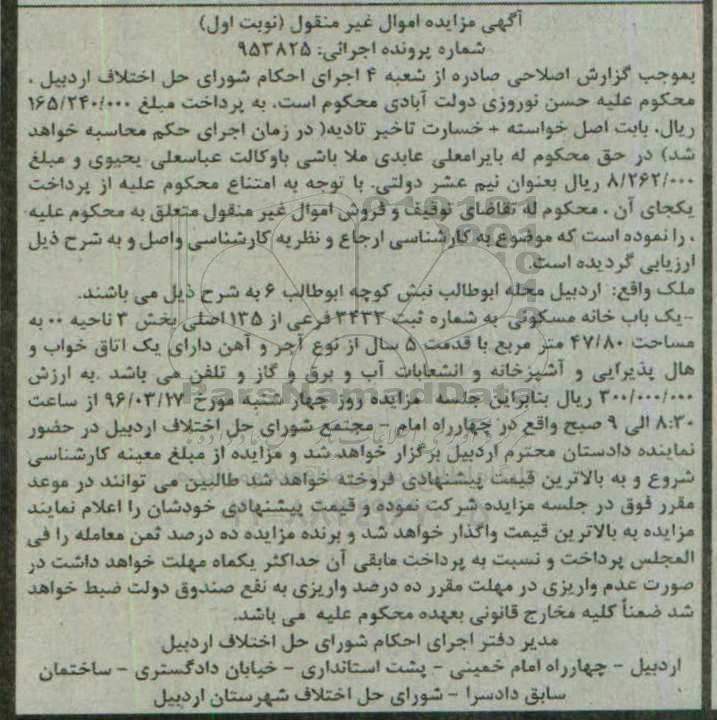 آگهی مزایده اموال غیر منقول (نوبت اول)
شماره پرونده اجرائی: ۹۵۳۸۲۵
بموجب گزارش اصلاحی صادره از شعبه ۴ اجرای احکام شورای حل اختلاف اردبیل ،
محکوم علیه حسن نوروزی دولت آبادی محکوم است، به پرداخت مبلغ ۱۶۵/۲۴۰/۰۰۰
ریال، بابت اصل خواسته + خسارت تاخیر تادیه( در زمان اجرای حکم محاسبه خواهد
شد) در حق محکوم له بایرامعلی عابدی ملا باشی باوکالت عباسعلی یحیوی و مبلغ
۸/۲۶۲/۰۰۰ ریال بعنوان نیم عشر دولتی. با توجه به امتناع محکوم علیه از پرداخت
یکجای آن ، محکوم له تقاضای توقیف و فروش اموال غیر منقول متعلق به محکوم علیه
، را نموده است که موضوع به کارشناسی ارجاع و نظریه کارشناسی واصل و به شرح ذیل
ارزیابی گردیده است.
ملک واقع: اردبیل محله ابوطالب نبش کوچه ابوطالب ۶ به شرح ذیل می باشند.
-یک باب خانه مسکونی به شماره ثبت ۳۴۳۳ فرعی از ۱۳۵ اصلی بخش ۳ ناحیه ۰۰ به
مساحت ۴۷/۸۰ متر مربع با قدمت ۵ سال از نوع آجر و آهن دارای یک اتاق خواب و
هال پذیرایی و آشپزخانه و انشعابات آب و برق و گاز و تلفن می باشد .به ارزش
۳۰۰/۰۰۰/۰۰۰ ریال بنابراین جلسه مزایده روز چهار شنبه مورخ ۹۶/۰۳/۲۷ از ساعت
۸:۳۰ الی ۹ صبح واقع در چهارراه امام – مجتمع شورای حل اختلاف اردبیل در حضور
نماینده دادستان محترم اردبیل برگزار خواهد شد و مزایده از مبلغ معینه کارشناسی
شروع و به بالاترین قیمت پیشنهادی فروخته خواهد شد طالبین می توانند در موعد
مقرر فوق در جلسه مزایده شرکت نموده و قیمت پیشنهادی خودشان را اعلام نمایند
مزایده به بالاترین قیمت واگذار خواهد شد و برنده مزایده ده درصد ثمن معامله را فی
المجلس پرداخت و نسبت به پرداخت مابقی آن حداکثر یکماه مهلت خواهد داشت در
صورت عدم واریزی در مهلت مقرر ده درصد واریزی به نفع صندوق دولت ضبط خواهد
شد ضمناً کلیه مخارج قانونی بعهده محکوم علیه می باشد.
مدیر دفتر اجرای احکام شورای حل اختلاف اردبیل
اردبیل – چهارراه امام خمینی – پشت استانداری – خیابان دادگستری – ساختمان
سابق دادسرا – شورای حل اختلاف شهرستان اردبیل
ParsNamadData